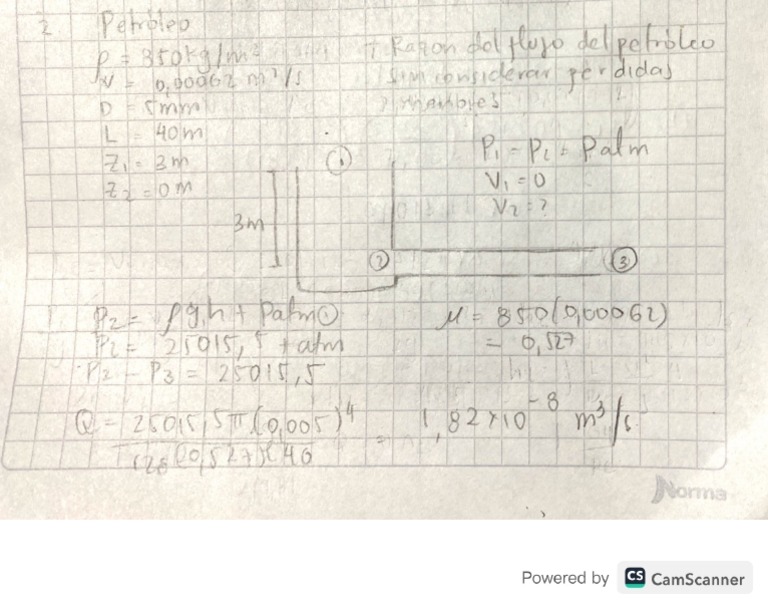 2 Petróleo
ρ = 850 kg/m³
ν = 0,00062 m²/s
D = 5mm
L = 40m
Z₁ = 3m
Z₂ = 0m
Razon del flujo del petróleo
sin considerar perdidas
menores
P₁ = P₂ = Patm
V₁ = 0
V₂ = ?
①
3m
②
③
P₂ = ρgh + Patm①
P₂ = 25015,5 + atm
P₂ - P₃ = 25015,5
μ = 850(0,00062)
= 0,527
Q = 25015,5π(0,005)⁴ = 1,82×10⁻⁸ m³/s
128(0,527)(40
Norma
Powered by CS CamScanner